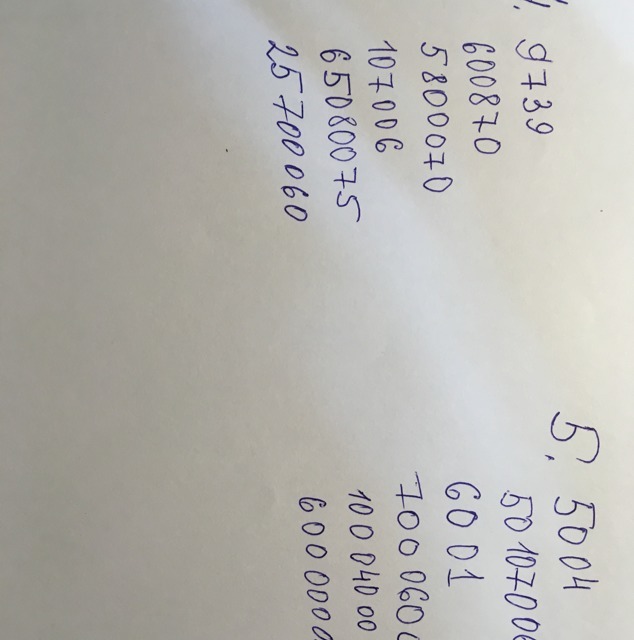 9739
600870
5800070
107006
65080075
25700060
5. 5004
5010700
6001
700060
10004000
600000